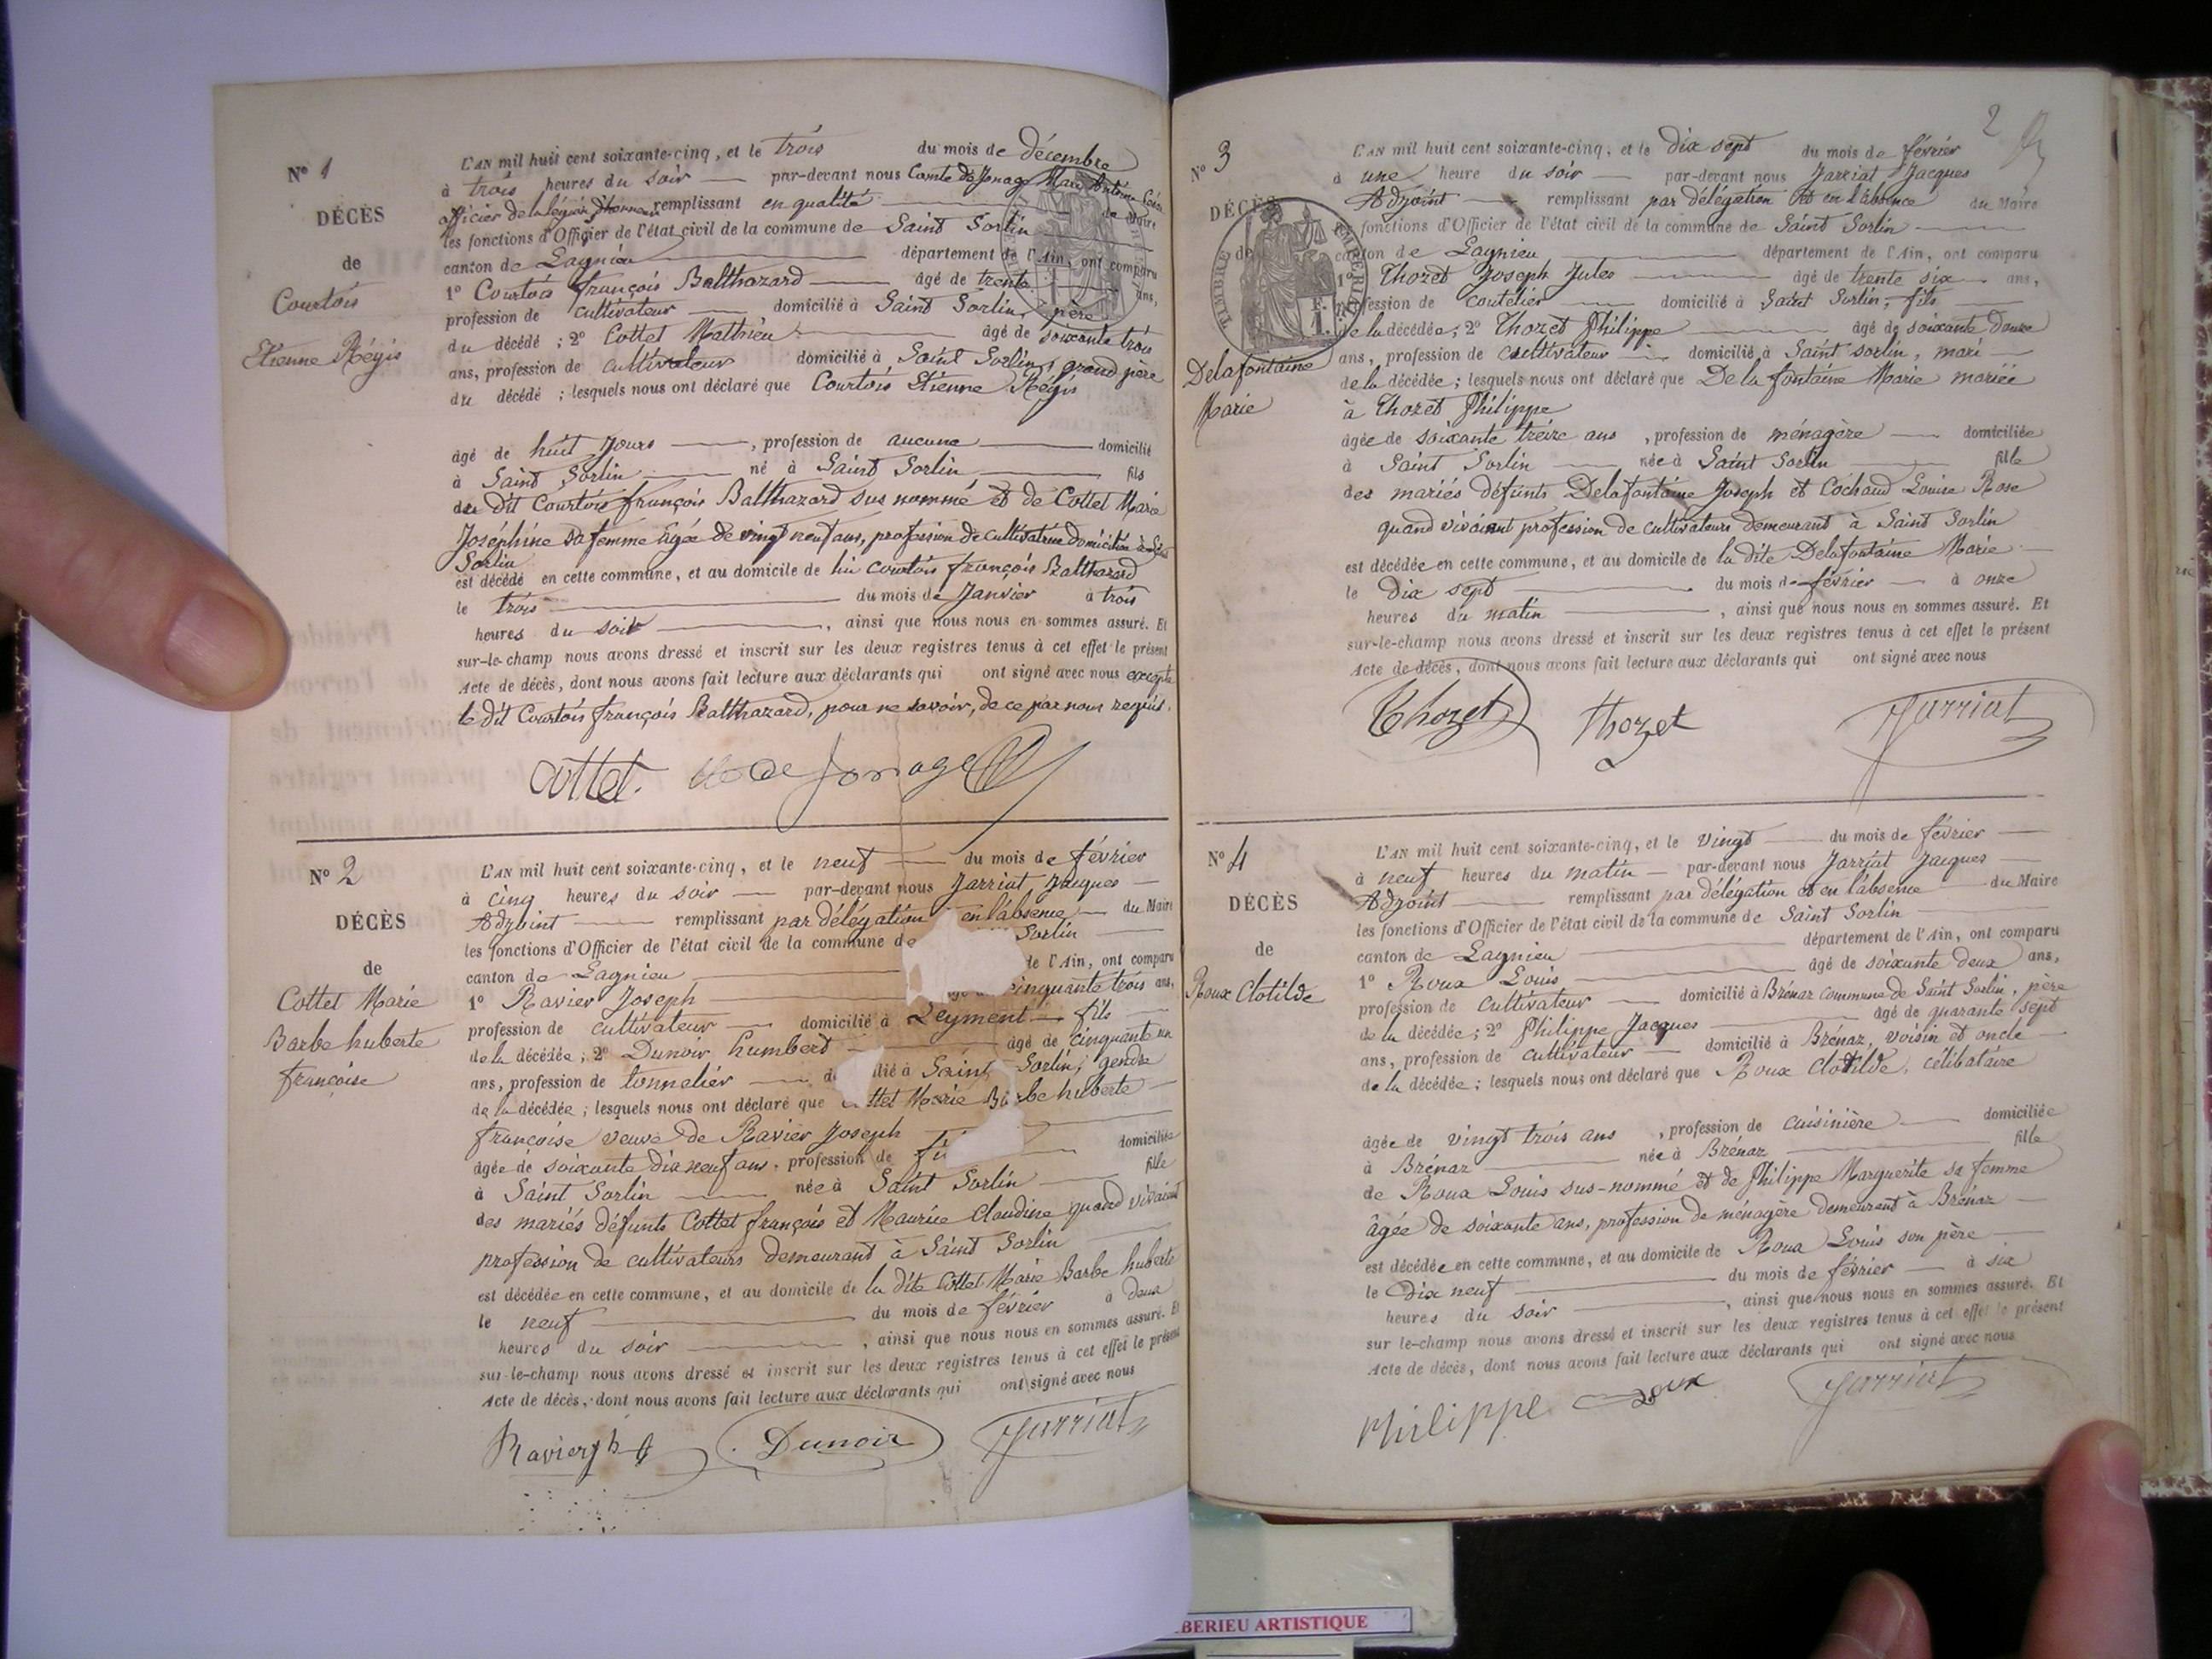 N° 1
DÉCÈS
de
Courtois
Etienne Régis
L'AN mil huit cent soixante-cinq, et le trois du mois de décembre
à trois heures du soir par-devant nous Comte de Jonage Marc Antoine
officier de la légion d'honneur remplissant en qualité de Maire
les fonctions d'Officier de l'état civil de la commune de Saint Sorlin
canton de Lagnieu département de l'Ain, ont comparu
1° Courtois françois Balthazard âgé de trente ans,
profession de cultivateur domicilié à Saint Sorlin, père
du décédé ; 2° Cottet Mathieu âgé de soixante trois
ans, profession de cultivateur domicilié à Saint Sorlin, grand père
du décédé ; lesquels nous ont déclaré que Courtois Etienne Régis
âgé de huit jours , profession de aucune domicilié
à Saint Sorlin né à Saint Sorlin fils
du dit Courtois françois Balthazard sus nommé et de Cottet Marie
Joséphine sa femme âgée de vingt neuf ans, profession de cultivatrice domiciliée à
Sorlin
est décédé en cette commune, et au domicile de lui Courtois françois Balthazard
le trois du mois de Janvier à trois
heures du soir , ainsi que nous nous en sommes assuré. Et
sur-le-champ nous avons dressé et inscrit sur les deux registres tenus à cet effet le présent
Acte de décès, dont nous avons fait lecture aux déclarants qui ont signé avec nous excepté
le dit Courtois françois Balthazard, pour ne savoir, de ce par nous requis.
Cottet. de Jonage
N° 2
DÉCÈS
de
Cottet Marie
Barbe huberte
françoise
L'AN mil huit cent soixante-cinq, et le neuf du mois de février
à cinq heures du soir par-devant nous Jarriat Jacques
Adjoint remplissant par délégation en l'absence du Maire
les fonctions d'Officier de l'état civil de la commune de Sorlin
canton de Lagnieu de l'Ain, ont comparu
1° Ravier Joseph cinquante trois ans,
profession de cultivateur domicilié à Leyment fils
de la décédée ; 2° Dunoir humbert âgé de cinquante un
ans, profession de tonnelier à Saint Sorlin, gendre
de la décédée ; lesquels nous ont déclaré que Marie Barbe huberte
françoise veuve de Ravier Joseph
âgée de soixante dix neuf ans, profession de domiciliée
à Saint Sorlin née à Saint Sorlin fille
des mariés défunts Cottet françois et Maurice Claudine quand vivaient
profession de cultivateurs demeurant à Saint Sorlin
est décédée en cette commune, et au domicile de la dite Cottet Marie Barbe huberte
le neuf du mois de février à deux
heures du soir , ainsi que nous nous en sommes assuré. Et
sur-le-champ nous avons dressé et inscrit sur les deux registres tenus à cet effet le présent
Acte de décès, dont nous avons fait lecture aux déclarants qui ont signé avec nous
Ravier Dunoir Jarriat
2
N° 3
DÉCÈS
de
TIMBRE IMPÉRIAL
Delafontaine
Marie
L'AN mil huit cent soixante-cinq, et le dix sept du mois de février
à une heure du soir par-devant nous Jarriat Jacques
Adjoint remplissant par délégation et en l'absence du Maire
les fonctions d'Officier de l'état civil de la commune de Saint Sorlin
canton de Lagnieu département de l'Ain, ont comparu
1° Thozet Joseph Jules âgé de trente six ans,
profession de coutelier domicilié à Saint Sorlin, fils
de la décédée ; 2° Thozet Philippe âgé de soixante douze
ans, profession de cultivateur domicilié à Saint sorlin, mari
de la décédée ; lesquels nous ont déclaré que De la fontaine Marie mariée
à Thozet Philippe
âgée de soixante treize ans , profession de ménagère domiciliée
à Saint Sorlin née à Saint Sorlin fille
des mariés défunts Delafontaine Joseph et Cochaud Louise Rose
quand vivaient profession de cultivateurs demeurant à Saint Sorlin
est décédée en cette commune, et au domicile de la dite Delafontaine Marie
le dix sept du mois de février à onze
heures du matin , ainsi que nous nous en sommes assuré. Et
sur-le-champ nous avons dressé et inscrit sur les deux registres tenus à cet effet le présent
Acte de décès, dont nous avons fait lecture aux déclarants qui ont signé avec nous
Thozet Thozet Jarriat
N° 4
DÉCÈS
de
Roux Clotilde
L'AN mil huit cent soixante-cinq, et le vingt du mois de février
à neuf heures du matin par-devant nous Jarriat Jacques
Adjoint remplissant par délégation et en l'absence du Maire
les fonctions d'Officier de l'état civil de la commune de Saint Sorlin
canton de Lagnieu département de l'Ain, ont comparu
1° Roux Louis âgé de soixante deux ans,
profession de cultivateur domicilié à Brénaz commune de Saint Sorlin, père
de la décédée ; 2° Philippe Jacques âgé de quarante sept
ans, profession de cultivateur domicilié à Brénaz, voisin et oncle
de la décédée ; lesquels nous ont déclaré que Roux Clotilde, célibataire
âgée de vingt trois ans , profession de cuisinière domiciliée
à Brénaz née à Brénaz fille
de Roux Louis sus-nommé et de Philippe Marguerite sa femme
âgée de soixante ans, profession de ménagère demeurant à Brénaz
est décédée en cette commune, et au domicile de Roux Louis son père
le dix neuf du mois de février à six
heures du soir , ainsi que nous nous en sommes assuré. Et
sur le-champ nous avons dressé et inscrit sur les deux registres tenus à cet effet le présent
Acte de décès, dont nous avons fait lecture aux déclarants qui ont signé avec nous
Philippe Roux Jarriat
BERIEU ARTISTIQUE